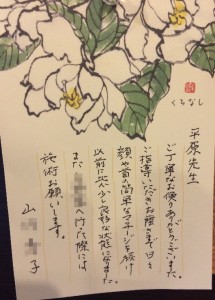 くちなし
平原先生
ご丁寧なお便りありがとうございました。
ご指導いただきお蔭さまで日々
顔や首の簡単なマッサージを続け
以前に比べ少し良好な状態になりました。
また へ行った際には
施術お願いします。
山 子